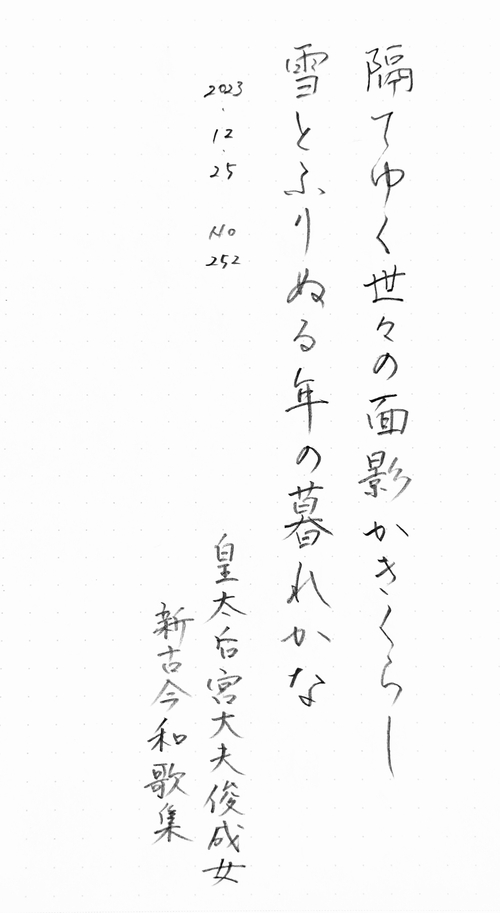 隔てゆく世々の面影かきくらし
雪とふりぬる年の暮れかな
2023.12.25 No 252
皇太后宮大夫俊成女
新古今和歌集